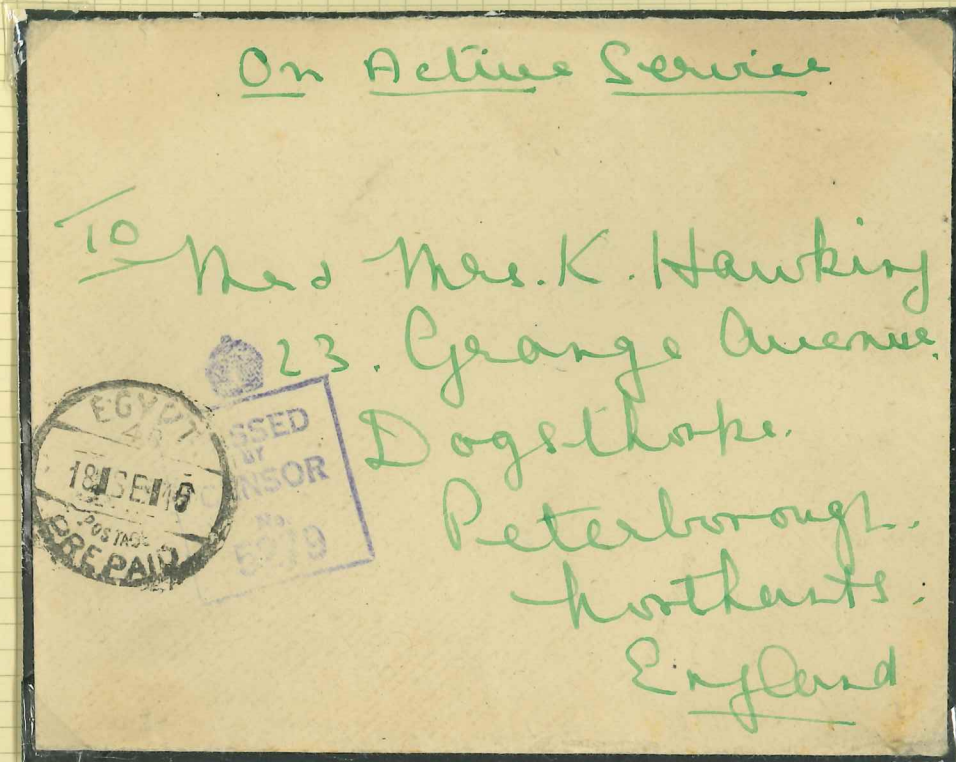 On Active Service
To
Mr & Mrs. K. Hawkins
23. Grange Avenue.
Dogsthorpe.
Peterborough.
Northants.
England
EGYPT
POSTAGE
PREPAID
BY
CENSOR
No.